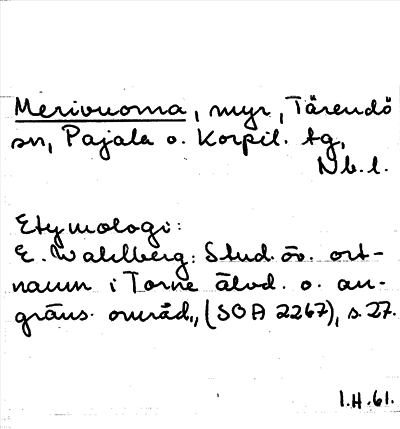 Merivuoma, myr, Tärendö
sn, Pajala o. Korpil. tg,
Nb. l.
Etymologi:
E. Wahlberg: Stud. öv. ort-
namn i Torne älvd. o. an-
gräns. områd., (SOA 2267), s. 27.
I.H. 61.